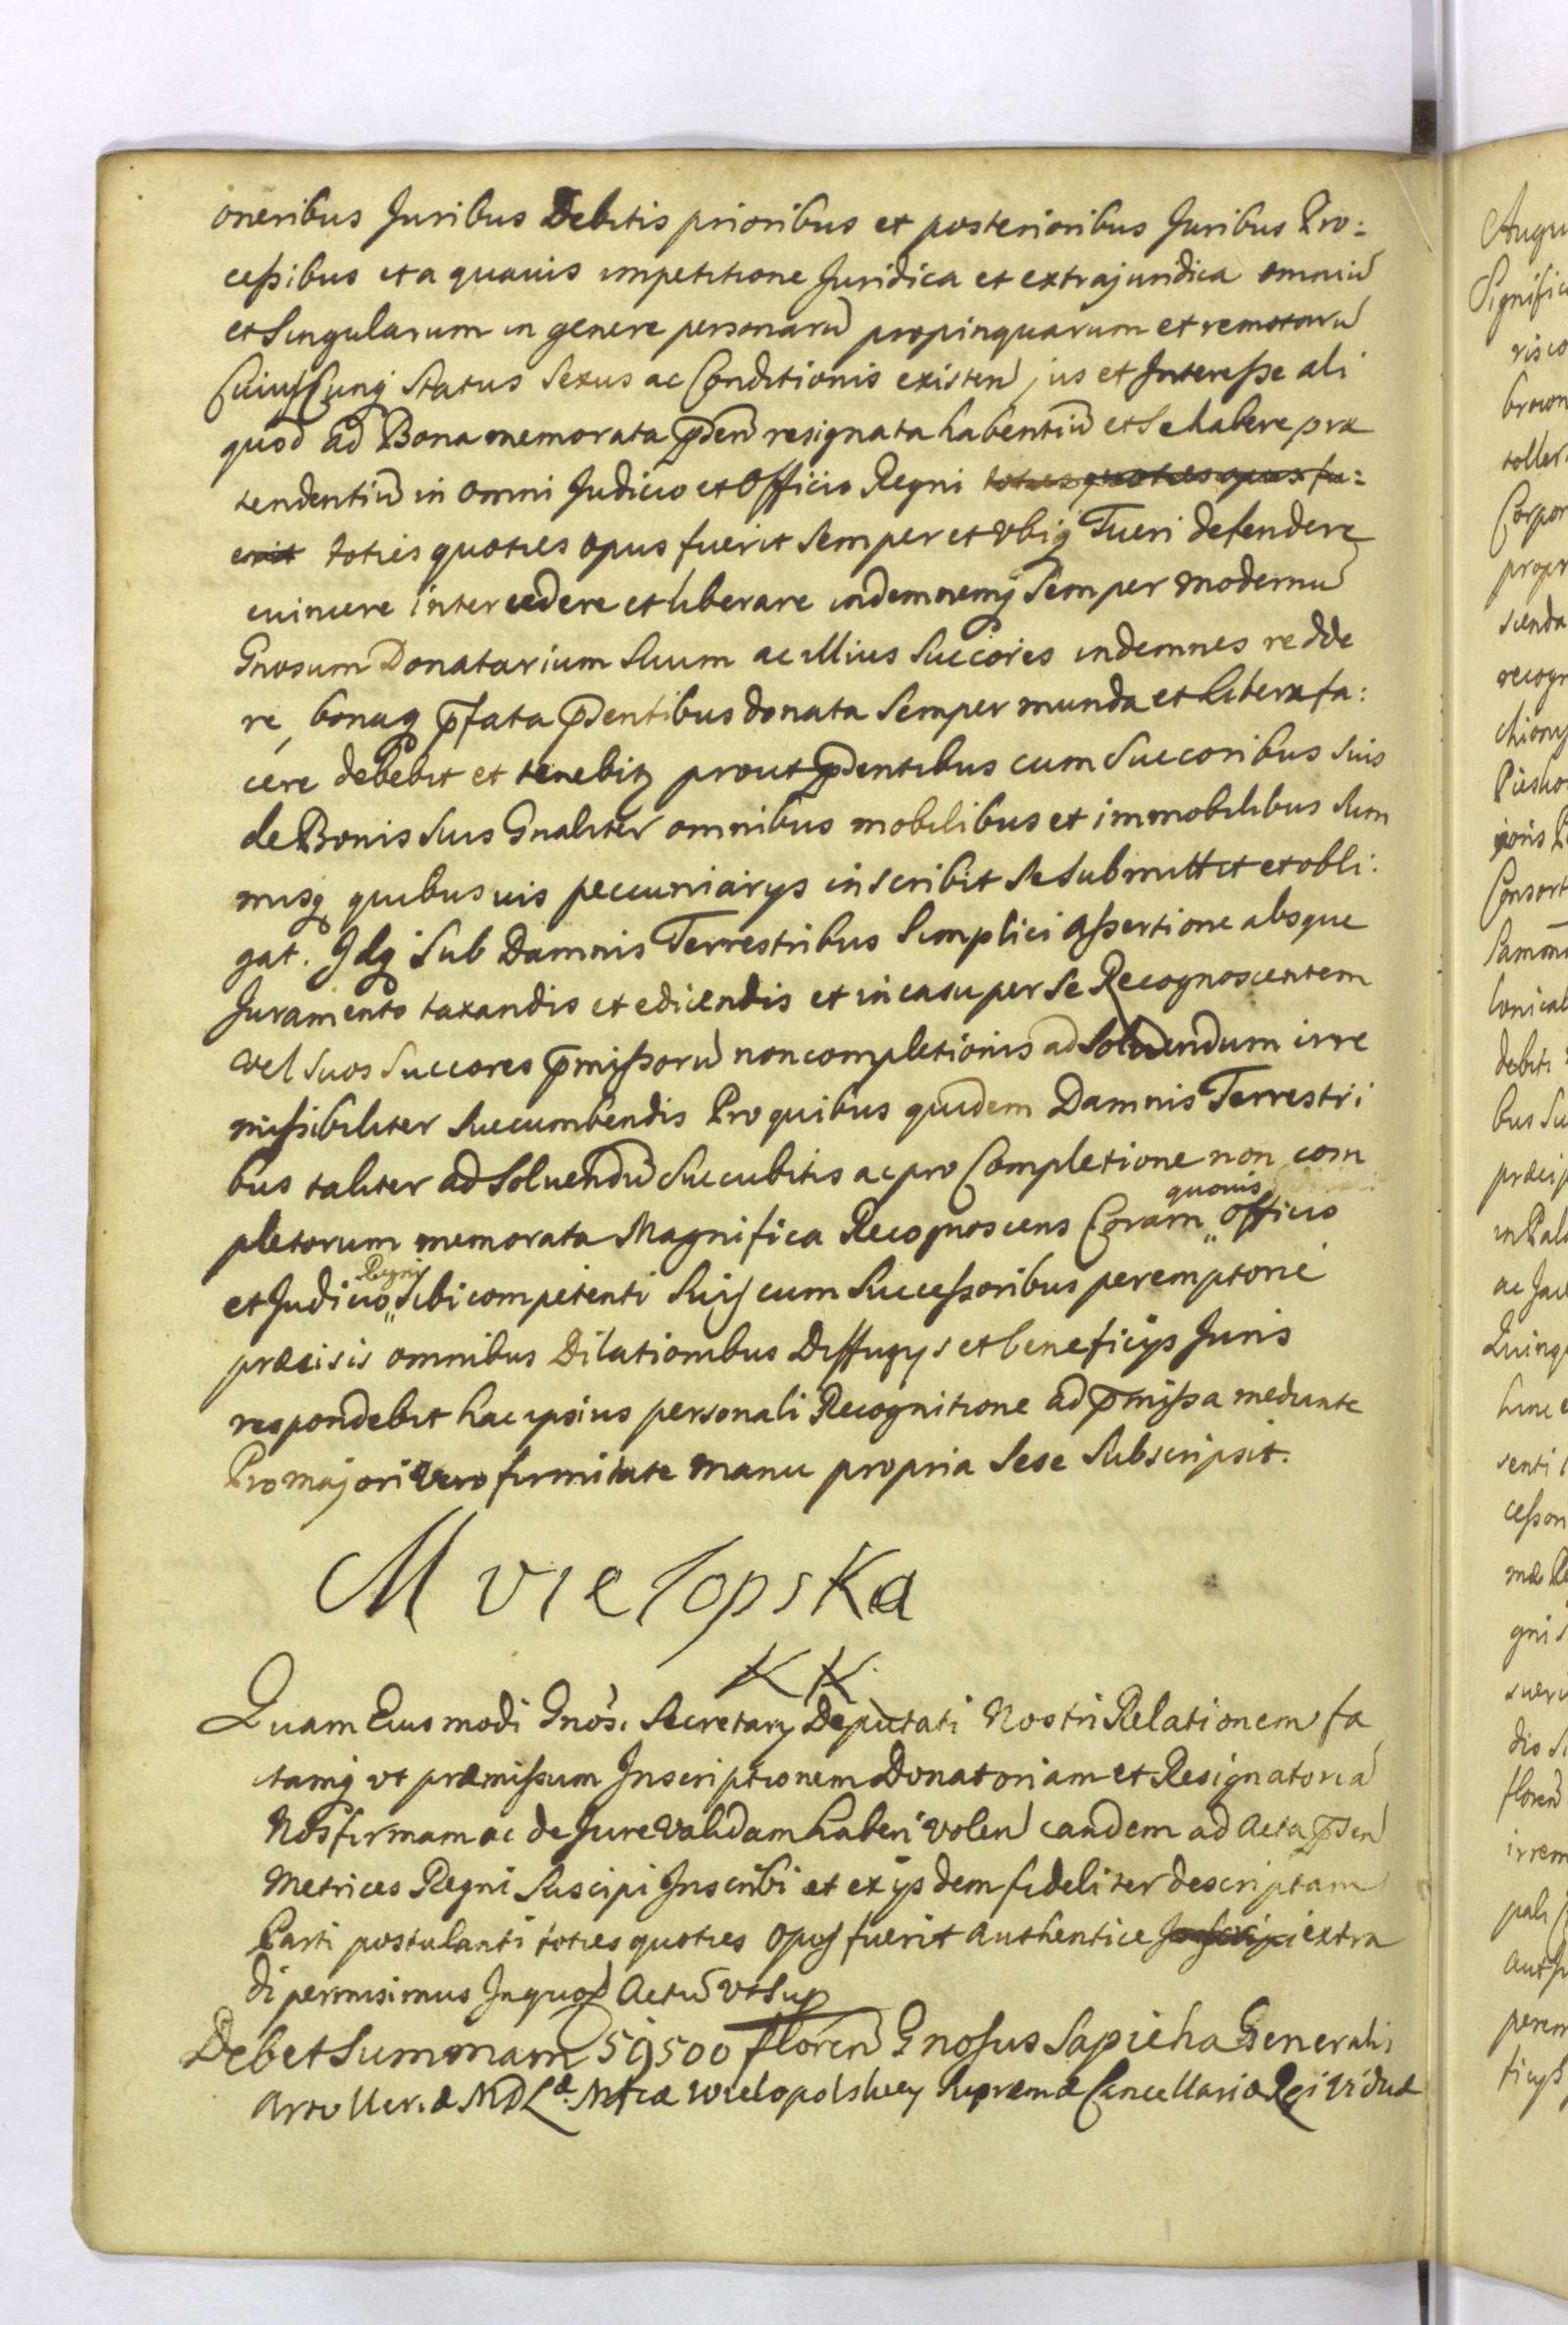 oneribus Juribus Debitis prioribus et posterioribus Juribus Pro:
cessibus et a quauis impetitione Juridica et extrajuridica omniu
et Singularum in genere personaru propinquarum et remotaru
CuiusCunq Status Sexus ac Conditionis existen jus et Interesse ali
quod ad Bona memorata pden resignata habentiu et Se habere præ
tendentiu in omni Judicio et Officio Regni toties quoties opus fu:
erit toties quoties opus fuerit Semper et Vbiq Tueri defendere
euincere intercedere et liberare indemnemq Semper modernu
Gnosum Donatarium Suum ac illius Succores indemnes redde
re, bonaq pfata pdentibus donata Semper munda et libera fa:
cere debebit et tenebit prout pdentibus cum Succoribus Suis
de Bonis Suis Gnaliter omnibus mobilibus et immobilibus Sum
misq quibusuis pecuniarys inscribit Se Submittit et obli:
gat. Idq Sub Damnis Terrestribus Simplici assertione absque
Juramento taxandis et edicendis et in casu per Se Recognoscentem
vel Suos Succores pmissoru non completionis ad Soluendum irre
missibiliter Succumbendis Pro quibus quidem Damnis Terrestri
bus taliter ad Soluendu Succubitis ac pro Completione non com
quouis
pletorum memorata Magnifica Recognoscens Coram officio
Regni
et Judicio Sibi competenti Suis cum Successoribus peremptorie
præcisis omnibus Dilationibus Diffugys et beneficys Juris
respondebit hac ipsius personali Recognitione ad pmissa mediante
Pro majori Vero firmitate manu propria Sese Subscripsit.
M vielopska
KK.
Quam Eiusmodi Gnosi Secretary Deputati Nostri Relationem fa
ctamq vt præmissum Inscriptionem Donatoriam et Resignatoria
Nos firmam ac de Jure Validam haberi volen eandem ad Acta psen
Metrices Regni Suscipi Inscribi et ex ijsdem fideliter descriptam
Parti postulanti toties quoties opus fuerit authentice extra
di permisimus Inquod Actu vt Sup
Debet Summam 59500 floren Gnosus Sapieha Generalis
Artoller. æ MDLæ Mfcæ Wielopolskiey Supremæ Cancellariæ Rgi Viduæ